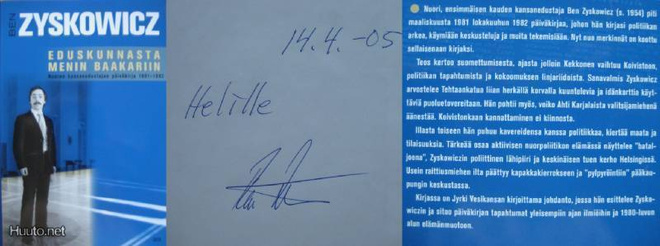 BEN
ZYSKOWICZ
EDUSKUNNASTA
MENIN BAAKARIIN
Nuoren kansanedustajan päiväkirja 1981–1982
Huuto.net
14.4.-05
Helille
Nuori, ensimmäisen kauden kansanedustaja Ben Zyskowicz (s. 1954) piti
maaliskuusta 1981 lokakuuhun 1982 päiväkirjaa, johon hän kirjasi politiikan
arkea, käymiään keskusteluja ja muita tekemisiään. Nyt nuo merkinnät on koottu
sellaisenaan kirjaksi.
Teos kertoo suomettumisesta, ajasta jolloin Kekkonen vaihtui Koivistoon,
politiikan tapahtumista ja kokoomuksen linjariidoista. Sanavalmis Zyskowicz
arvostelee Tehtaankatua liian herkällä korvalla kuuntelevia ja idänkorttia käyt-
täviä puoluetovereitaan. Hän pohtii myös, voiko Ahti Karjalaista valitsijamiehenä
äänestää. Koivistonkaan kannattaminen ei kiinnosta.
Illasta toiseen hän puhuu kavereidensa kanssa politiikkaa, kiertää maata ja
tilaisuuksia. Tärkeää osaa aktiivisen nuorpoliitikon elämässä näyttelee "batal-
joona", Zyskowiczin poliittinen lähipiiri ja keskinäisen tuen kerho Helsingissä.
Usein raittiusmiehen ilta päättyy kapakkakierrokseen ja "pylpyröintiin" pääkau-
pungin keskustassa.
Kirjassa on Jyrki Vesikansan kirjoittama johdanto, jossa hän esittelee Zysko-
wiczin ja sitoo päiväkirjan tapahtumat yleisempiin ajan ilmiöihin ja 1980-luvun
alun elämänmuotoon.